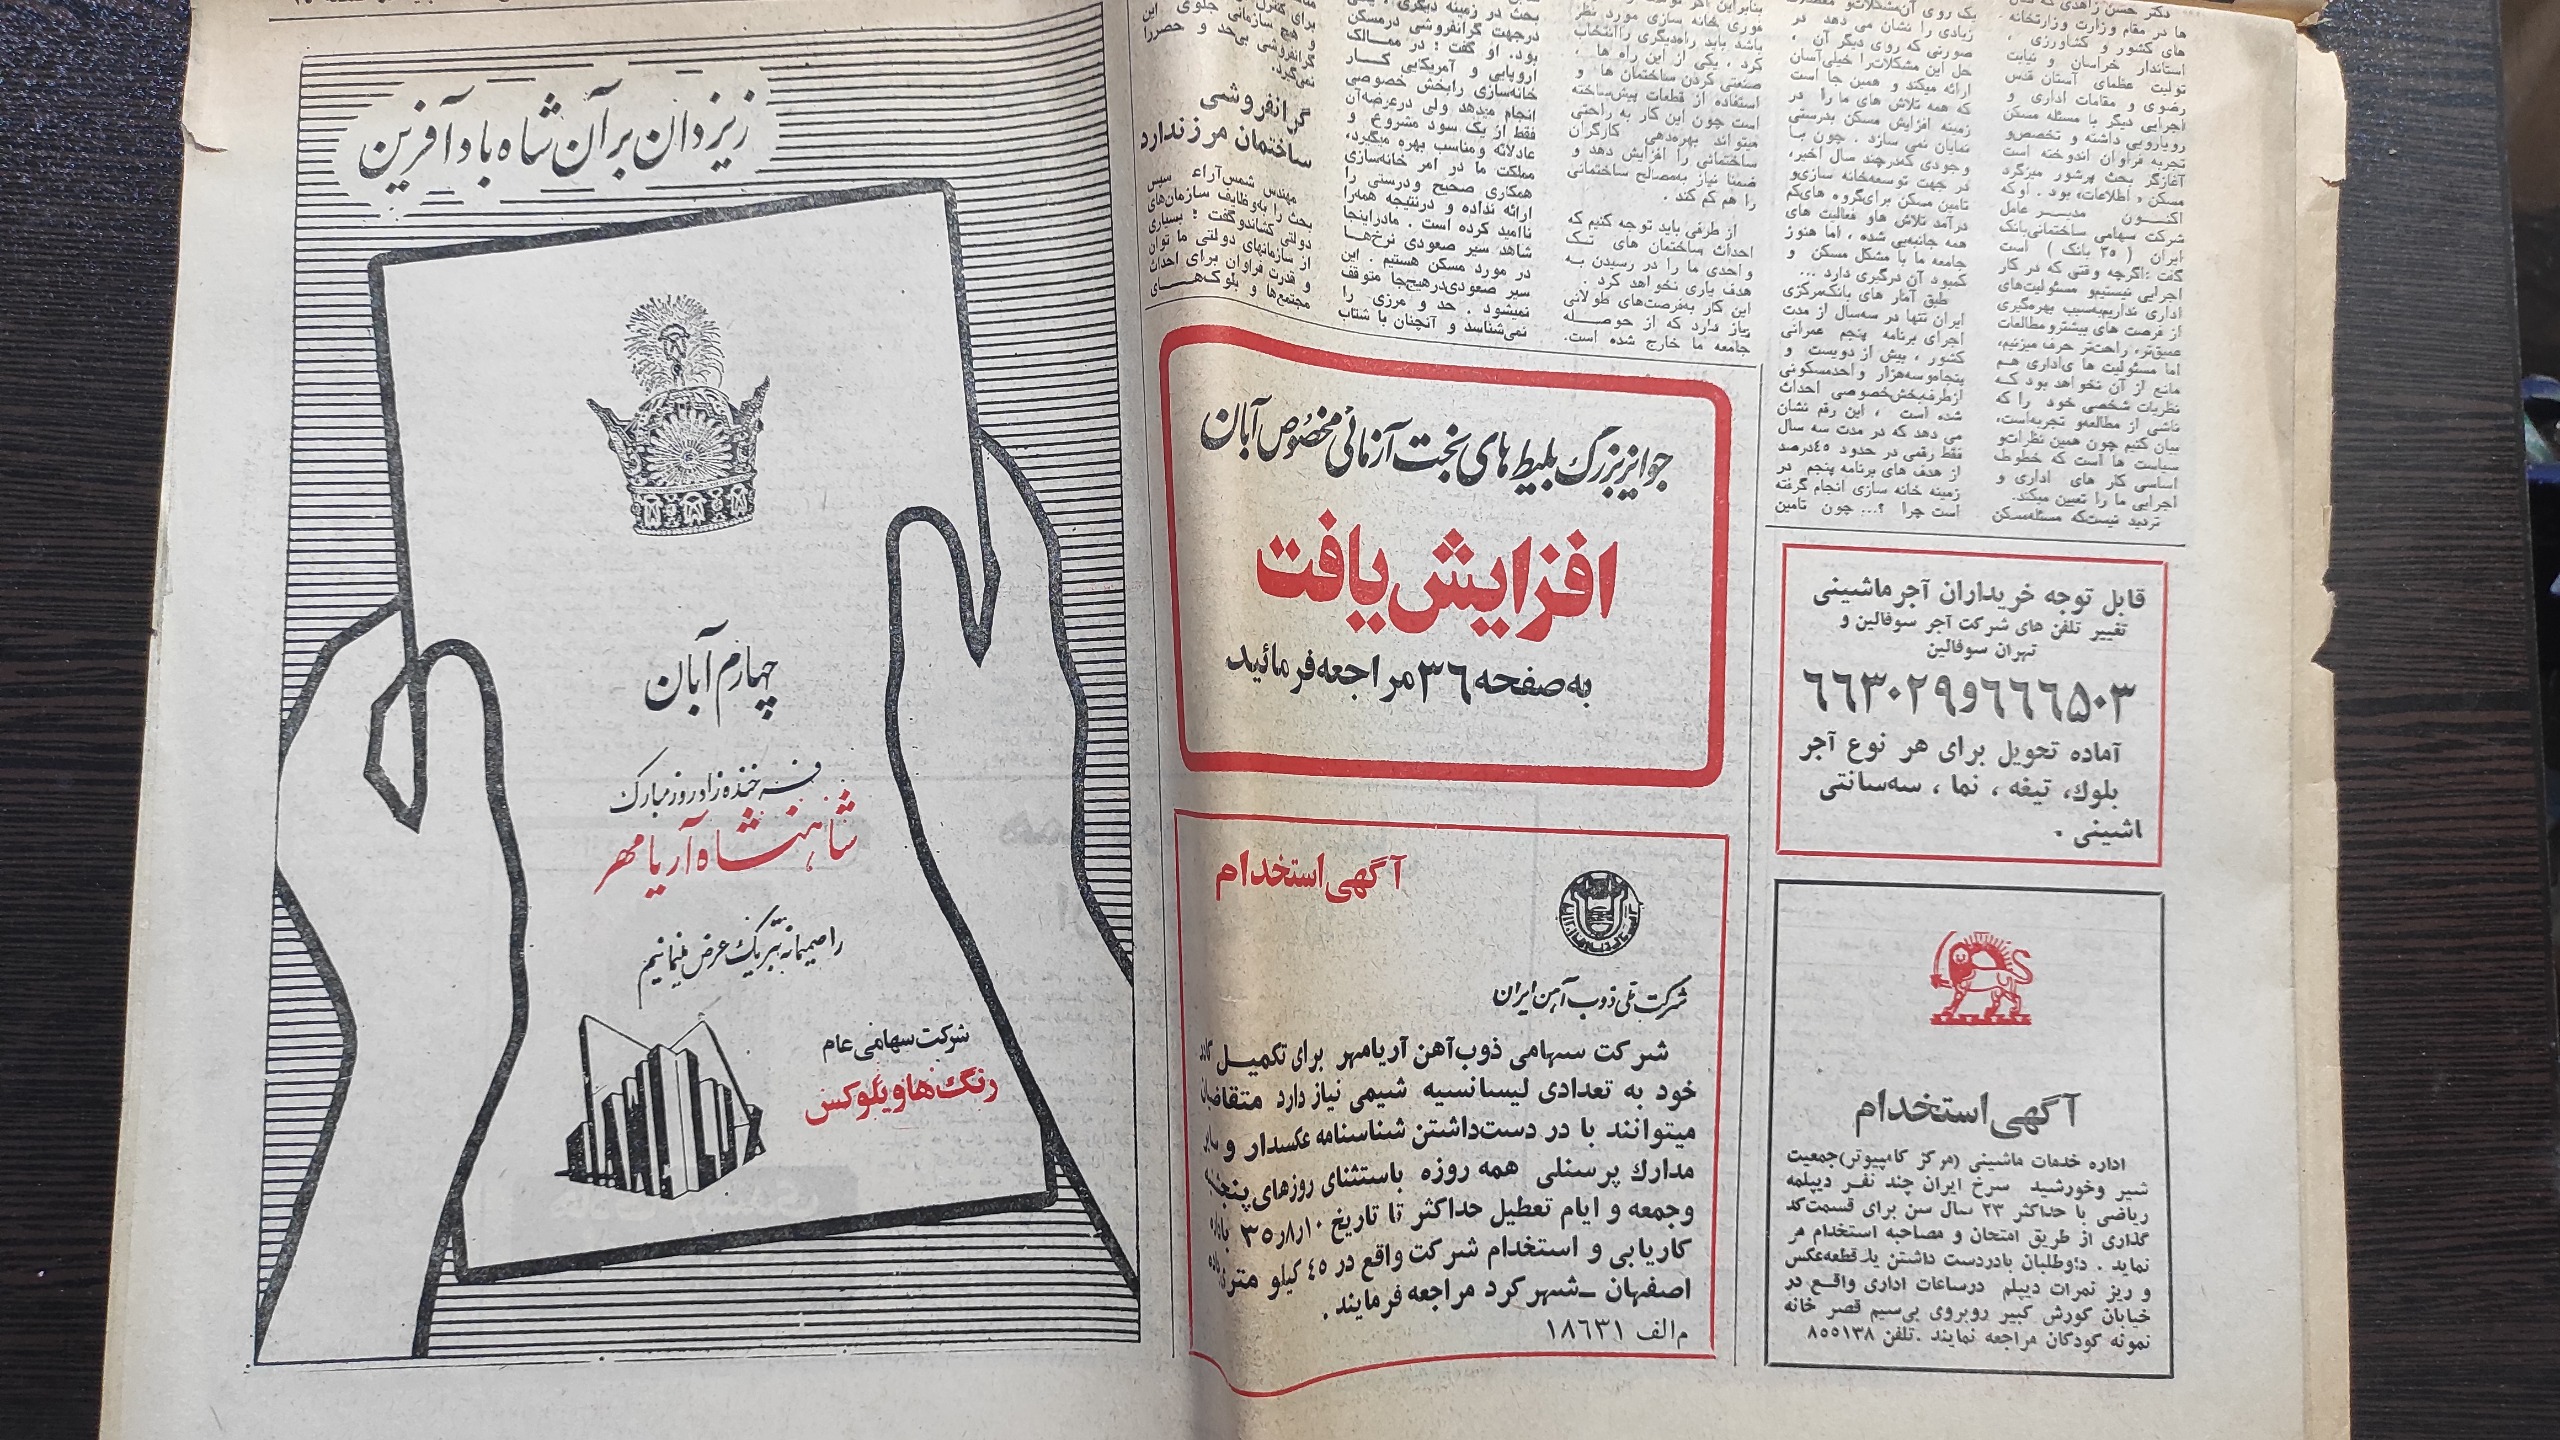 ها در مقام وزارت وزارتخانه
های کشور و کشاورزی ،
استاندار خراسان و نیابت
تولیت عظمای آستان قدس
رضوی و مقامات اداری و
اجرایی دیگر با مسئله مسکن
رویارویی داشته و تخصص‌و
تجربه فراوان اندوخته است
آغازگر بحث پرشور میزگرد
مسکن ، اطلاعات، بود . او که
اکنون مدیر عامل
شرکت سهامی ساختمانی‌بانک
ایران ( ۳۵ بانک ) است
گفت :اگرچه وقتی که در کار
اجرایی نیستیم‌و مسئولیت‌های
اداری نداریم‌به‌سبب بهره‌گیری
از فرصت های بیشترو‌مطالعات
عمیق‌تر، راحت‌تر حرف میزنیم،
اما مسئولیت های‌اداری هم
مانع از آن نخواهد بود که
نظریات شخصی خود را که
ناشی از مطالعه‌و تجربه‌است،
بیان کنیم چون همین نظرات‌و
سیاست ها است که خطوط
اساسی کار های اداری و
اجرایی ما را تعیین میکند.
تردید نیست‌که مسئله‌مسکن
زیادی را نشان می دهد در
صورتی که روی دیگر آن ،
حل این مشکلات‌را خیلی‌آسان
ارائه میکند و همین جا است
که همه تلاش های ما را در
زمینه افزایش مسکن بدرستی
نمایان نمی سازد . چون با
وجودی که‌در‌چند سال اخیر،
در جهت توسعه‌خانه سازی‌و
تامین مسکن برای‌گروه های‌کم
درآمد تلاش ها‌و فعالیت های
همه جانبه‌یی شده ، اما هنوز
جامعه ما با مشکل مسکن و
کمبود آن درگیری دارد ...
طبق آمار های بانک‌مرکزی
ایران تنها در سه‌سال از مدت
اجرای برنامه پنجم عمرانی
کشور ، بیش از دویست و
پنجاه‌و‌سه‌هزار واحد‌مسکونی
از‌طرف‌بخش‌خصوصی احداث
شده است ، این رقم نشان
می دهد که در مدت سه سال
فقط رقمی در حدود ۴۵درصد
از هدف های برنامه پنجم در
زمینه خانه سازی انجام گرفته
است چرا ؟... چون تامین
فوری خانه سازی مورد نظر
باشد باید راه‌دیگری را‌انتخاب
کرد ، یکی از این راه ها ،
صنعتی کردن ساختمان ها و
استفاده از قطعات پیش‌ساخته
است چون این کار به راحتی
میتواند بهره‌دهی کارگران
ساختمانی را افزایش دهد و
ضمنا نیاز به‌مصالح ساختمانی
را هم کم کند .
از طرفی باید توجه کنیم که
احداث ساختمان های تک
واحدی ما را در رسیدن به
هدف یاری نخواهد کرد .
این کار به‌فرصت‌های طولانی
نیاز دارد که از حوصله
جامعه ما خارج شده است.
بحث در زمینه دیگری
درجهت گرانفروشی در‌مسکن
بود. او گفت : در ممالک
اروپایی و آمریکایی کار
خانه‌سازی را‌بخش خصوصی
انجام میدهد ولی در‌عرضه‌آن
فقط از یک سود مشروع و
عادلانه و‌مناسب بهره میگیرد،
مملکت ما در امر خانه‌سازی
همکاری صحیح و‌درستی را
ارائه نداده و در‌نتیجه همه‌را
ناامید کرده است . ما‌در‌اینجا
شاهد سیر صعودی نرخ‌ها
در مورد مسکن هستیم . این
سیر صعودی‌در‌هیچ‌جا متوقف
نمیشود . حد و مرزی را
نمی‌شناسد و آنچنان با شتاب
و هیچ سازمانی جلوی این
گرانفروشی بی‌حد و حصررا
نمی‌گیرد.
گرانفروشی
ساختمان مرز ندارد
مهندس شمس‌آراء سپس
بحث را به‌وظایف سازمان‌های
دولتی کشاند‌و‌گفت : بسیاری
از سازمانهای دولتی ما توان
و قدرت فراوان برای احداث
مجتمع‌ها و بلوک‌های
قابل توجه خریداران آجر ماشینی
تغییر تلفن های شرکت آجر سوفالین و
تهران سوفالین
۶۶۶۵۰۳و۶۶۳۰۲۹
آماده تحویل برای هر نوع آجر
بلوک، تیغه ، نما ، سه‌سانتی
اشینی .
آگهی استخدام
اداره خدمات ماشینی (مرکز کامپیوتر)جمعیت
شیر وخورشید سرخ ایران چند نفر دیپلمه
ریاضی با حداکثر ۲۳ سال سن برای قسمت‌کد
گذاری از طریق امتحان و مصاحبه استخدام مر
نماید . داوطلبان با‌در‌دست داشتن یک‌قطعه‌عکس
و ریز نمرات دیپلم در‌ساعات اداری واقع در
خیابان کورش کبیر روبروی بی‌سیم قصر خانه
نمونه کودکان مراجعه نمایند .تلفن ۸۵۵۱۳۸
جوایز بزرگ بلیط های بخت آزمائی مخصوص آبان
افزایش یافت
به صفحه ۳۶ مراجعه فرمائید
آگهی استخدام
شرکت ملی ذوب آهن ایران
شرکت سهامی ذوب‌آهن آریامهر برای تکمیل کادر
خود به تعدادی لیسانسیه شیمی نیاز دارد متقاضیان
میتوانند با در دست‌داشتن شناسنامه عکسدار و سایر
مدارک پرسنلی همه روزه باستثنای روزهای پنجشنبه
وجمعه و ایام تعطیل حداکثر تا تاریخ ۱۰ر۸ر۳۵ باداره
کاریابی و استخدام شرکت واقع در ۴۵ کیلو متری جاده
اصفهان ـ شهر کرد مراجعه فرمایند .
م‌الف ۱۸۶۳۱
ز یزدان بر آن شاه باد آفرین
چهارم آبان
فرخنده زادروز مبارک
شاهنشاه آریامهر
را صمیمانه تبریک عرض مینمائیم
شرکت سهامی عام
رنگ ها و یلوکس